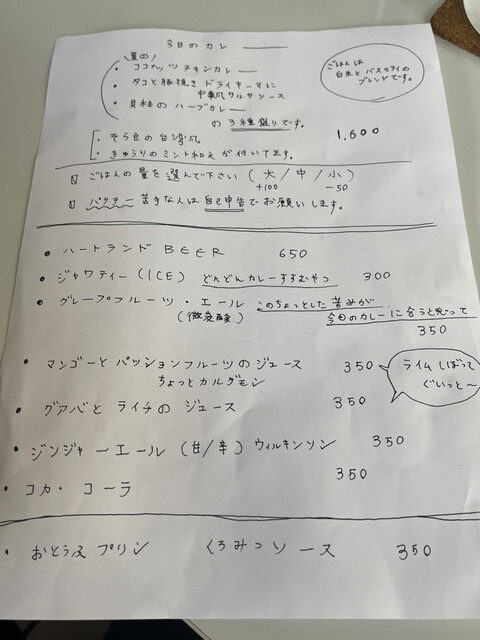 今日のカレー
夏の!
・ココナッツチキンカレー
・タコと豚挽きドライキーマに
中華風サルサソース
・貝柱のハーブカレー
の3種盛りです。
ごはんは
白米とバスマティの
ブレンドです。
・そら豆の台湾風
・きゅうりのミント和えが付いてます。
1,600
ごはんの量を選んで下さい (大/中/小)
+100 -50
パクチー苦手な人は自己申告でお願いします。
・ハートランドBEER 650
・ジャワティー(ICE) どんどんカレーすすむやつ 300
・グレープフルーツ・エール このちょっとした苦みが
(微炭酸) 今日のカレーに合うと思って
350
・マンゴーとパッションフルーツのジュース 350
ちょっとカルダモン
ライムしぼって
ぐいっと〜
・グアバとライチのジュース 350
・ジンジャーエール(甘/辛)ウィルキンソン 350
・コカ・コーラ 350
・おとうふプリン くろみつソース 350